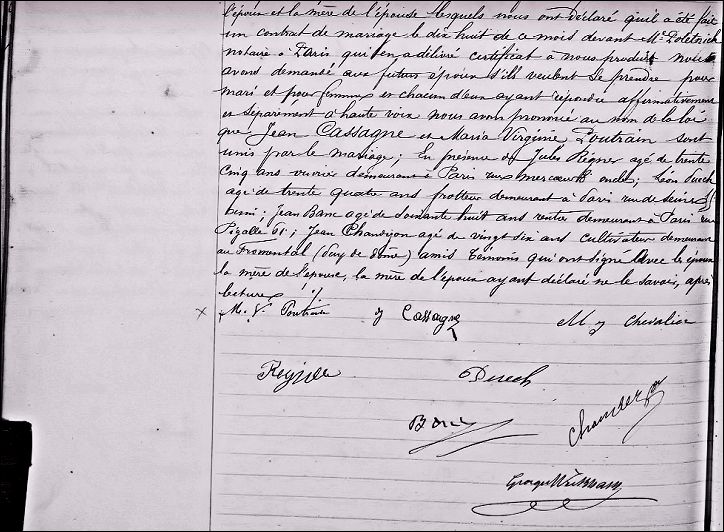 l'époux et la mère de l'épouse lesquels nous ont déclaré qu'il a été fait
un contrat de mariage le dix huit de ce mois devant Me
notaire à Paris qui en a délivré certificat à nous produit nous
avons demandé aux futurs époux s'ils veulent se prendre pour
mari et pour femme et chacun d'eux ayant répondu affirmativement
et séparément à haute voix nous avons prononcé au nom de la loi
que Jean CASSAGNE et Maria Virginie Poutrain sont
unis par le mariage; En présence de Jules Régner agé de trente
cinq ans ouvrier demeurant à Paris rue mercoeur; Léon Duech
agé de trente quatre ans frotteur demeurant à Paris rue de Seine
; Jean Banc agé de soixante huit ans rentier demeurant à Paris rue
Pigalle 61; Jean Chandezon agé de vingt six ans cultivateur demeurant
au Fromental (Puy de Dôme) amis témoins qui ont signé avec les époux
la mère de l'épouse, la mère de l'époux ayant déclaré ne le savoir, après
lecture
M. V. Poutrain Cassagne M Chevalier
Duech